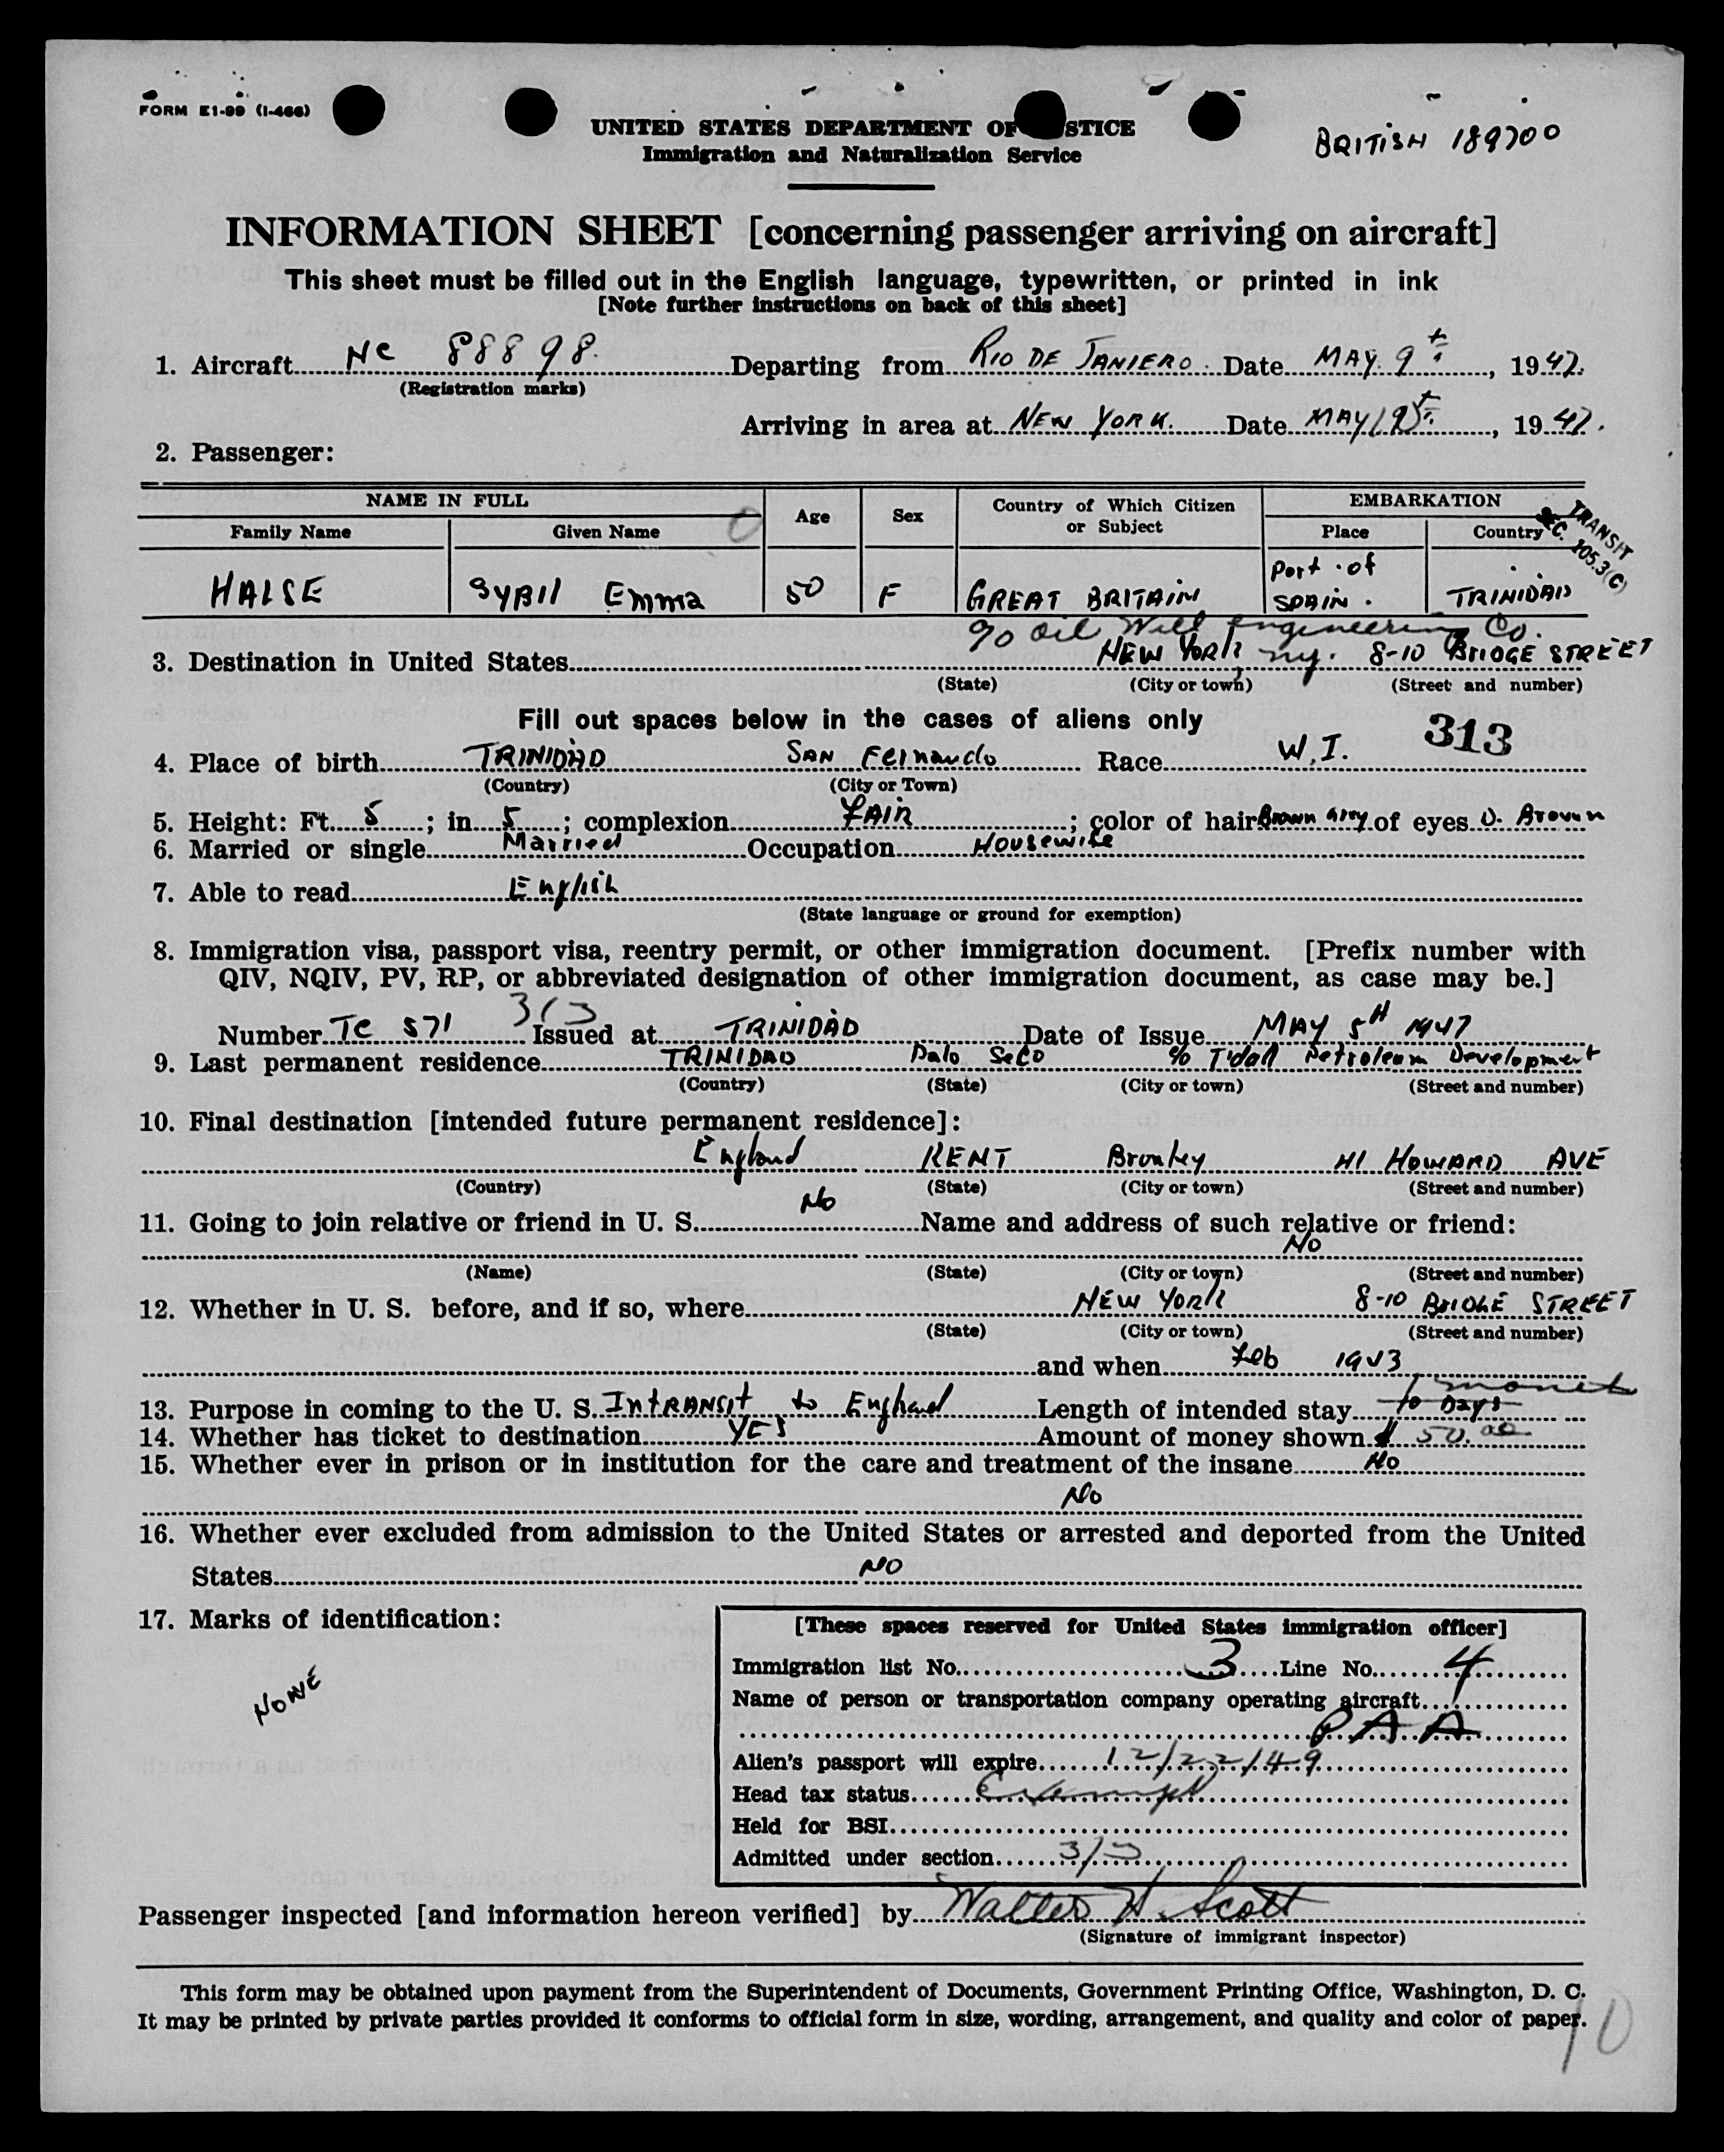 FORM E1-99 (I-466)
UNITED STATES DEPARTMENT OF STICE
Immigration and Naturalization Service
BRITISH 189700
INFORMATION SHEET [concerning passenger arriving on aircraft]
This sheet must be filled out in the English language, typewritten, or printed in ink
[Note further instructions on back of this sheet]
1. Aircraft NC 88898. Departing from RIO DE JANIERO. Date MAY 9th, 1947.
(Registration marks)
Arriving in area at NEW YORK. Date MAY 12th, 1947.
2. Passenger:
NAME IN FULL Age Sex Country of Which Citizen or Subject EMBARKATION
Family Name Given Name Place Country
TRANSIT
SEC. 105.3(C)
HALSE SYBIL Emma 50 F GREAT BRITAIN Port of SPAIN. TRINIDAD
c/o Oil Well Engineering Co.
3. Destination in United States NEW YORK, ny. 8-10 BRIDGE STREET
(State) (City or town) (Street and number)
Fill out spaces below in the cases of aliens only
313
4. Place of birth TRINIDAD SAN Fernando Race W.I.
(Country) (City or Town)
5. Height: Ft. 5; in. 5; complexion FAIR; color of hair Brown Grey of eyes D. Brown
6. Married or single Married Occupation Housewife
7. Able to read English
(State language or ground for exemption)
8. Immigration visa, passport visa, reentry permit, or other immigration document. [Prefix number with
QIV, NQIV, PV, RP, or abbreviated designation of other immigration document, as case may be.]
3(3
Number TC 571 Issued at TRINIDAD Date of Issue MAY 5H 1947
9. Last permanent residence TRINIDAD Palo Seco c/o Tidal Petroleum Development
(Country) (State) (City or town) (Street and number)
10. Final destination [intended future permanent residence]:
England KENT Bromley 41 HOWARD AVE
(Country) (State) (City or town) (Street and number)
11. Going to join relative or friend in U. S. No Name and address of such relative or friend:
No
(Name) (State) (City or town) (Street and number)
12. Whether in U. S. before, and if so, where NEW YORK 8-10 BRIDGE STREET
(State) (City or town) (Street and number)
and when Feb 1943
1 month
13. Purpose in coming to the U. S. InTRANSIT to England Length of intended stay 10 Days
14. Whether has ticket to destination YES Amount of money shown $ 50.00
15. Whether ever in prison or in institution for the care and treatment of the insane No
No
16. Whether ever excluded from admission to the United States or arrested and deported from the United
States NO
17. Marks of identification:
NONE
[These spaces reserved for United States immigration officer]
Immigration list No. 3 Line No. 4
Name of person or transportation company operating aircraft
P A A
Alien's passport will expire 12/22/49
Head tax status Exempt
Held for BSI
Admitted under section 3/3
Passenger inspected [and information hereon verified] by Walter H. Scott
(Signature of immigrant inspector)
This form may be obtained upon payment from the Superintendent of Documents, Government Printing Office, Washington, D. C.
It may be printed by private parties provided it conforms to official form in size, wording, arrangement, and quality and color of paper.
10